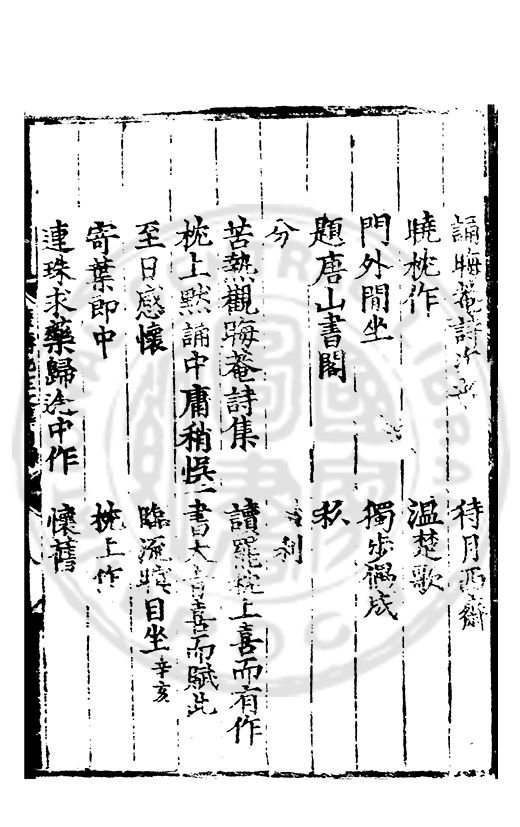 誦晦菴詩次 待月西齋
曉枕作 溫楚歌
門外閒坐 獨步偶成
題唐山書閣 秋
分 利
苦熱觀晦菴詩集 讀罷枕上喜而有作
枕上默誦中庸稍悞一書大喜而賦此
至日感懷 臨流瞑目坐辛亥
寄葉郎中 枕上作
連珠求藥歸途中作 懷舊